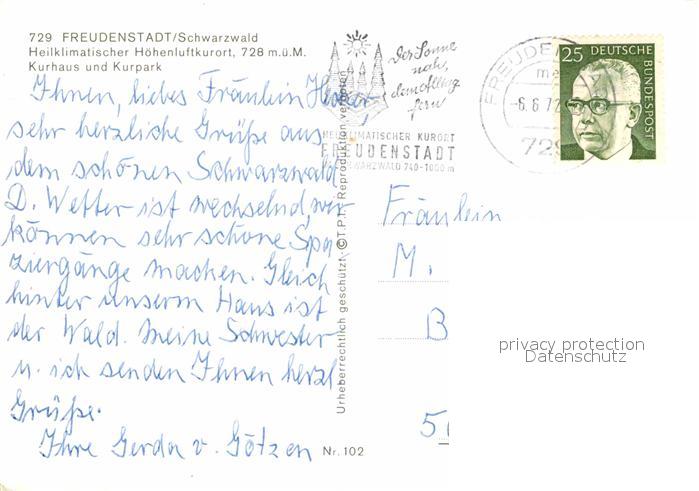 729 FREUDENSTADT/Schwarzwald
Heilklimatischer Höhenluftkurort, 728 m.ü.M.
Kurhaus und Kurpark
Ihnen, liebes Fräulein
sehr herzliche Grüße aus
dem schönen Schwarzwald
D. Wetter ist wechselnd, wir
können sehr schöne Spa
ziergänge machen. Gleich
hinter unserm Haus ist
der Wald. Meine Schwester
u. ich senden Ihnen herzl
Grüße.
Ihre Gerda v. Götzen
Nr. 102
Urheberrechtlich geschützt. © T.P.T. Reproduktion verboten
Der Sonne
nah,
dem Alltag
fern
HEILKLIMATISCHER KURORT
FREUDENSTADT
SCHWARZWALD 740-1000 m
FREUDEN
-6.6.72
729
25 DEUTSCHE
BUNDESPOST
Fräulein
M.
B
5
privacy protection
Datenschutz